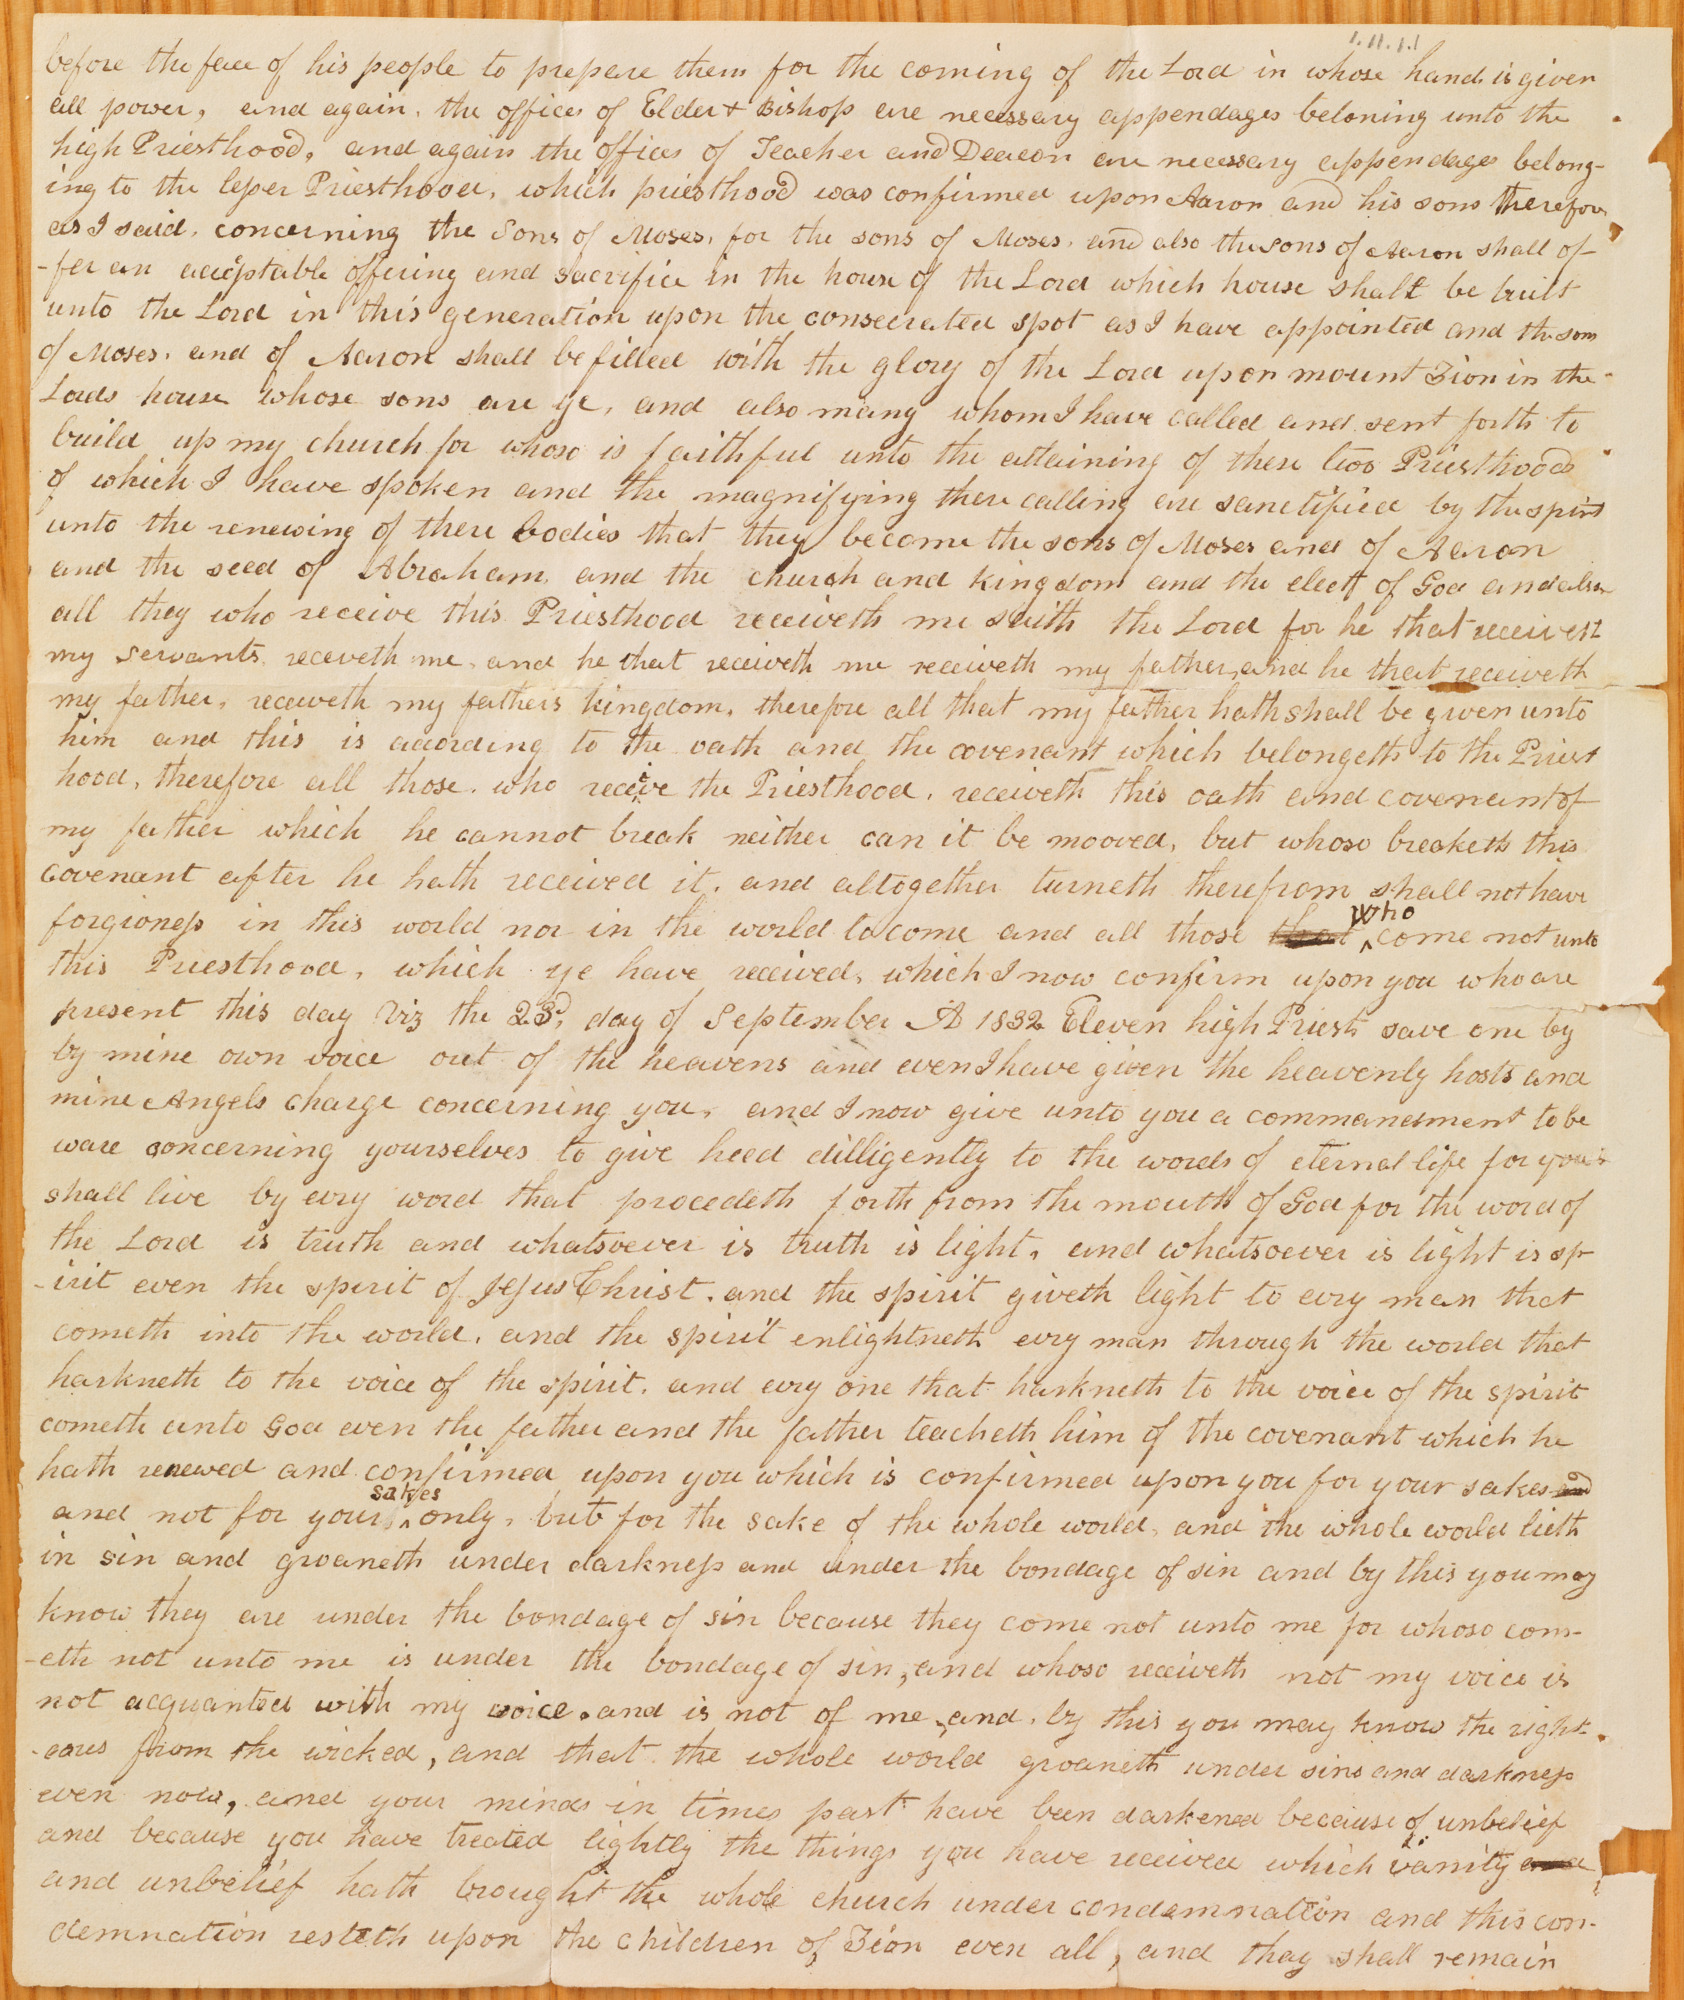 1.11.1.1
before the face of his people to prepare them for the coming of the Lord in whose hand is given
all power, and again, the offices of Elder & Bishop are necessary appendages beloning unto the
high Priesthood, and again the offices of Teacher and Deacon are necessary appendages belong-
ing to the leser Priesthood, which priesthood was confirmed upon Aaron and his sons therefore
as I said, concerning the Sons of Moses, for the sons of Moses, and also the sons of Aaron shall of-
-fer an acceptable offering and sacrifice in the house of the Lord which house shall be built
unto the Lord in this generation upon the consecrated spot as I have appointed and the sons
of Moses, and of Aaron shall be filled with the glory of the Lord upon mount Zion in the
Lords house whose sons are ye, and also many whom I have called and sent forth to
build up my church for whoso is faithful unto the attaining of these two Priesthoods
of which I have spoken and the magnifying there calling are sanctified by the spirit
unto the renewing of there bodies that they become the sons of Moses and of Aaron
and the seed of Abraham, and the church and kingdom and the elect of God and also
all they who receive this Priesthood receiveth me saith the Lord for he that receivest
my servants receveth me, and he that receiveth me receiveth my father, and he that receiveth
my father, receiveth my fathers kingdom, therefore all that my father hath shall be given unto
him and this is according to the oath and the covenant which belongeth to the Priest
hood, therefore all those, who receive the Priesthood, receiveth this oath and covenant of
my father which he cannot break neither can it be mooved, but whoso breaketh this
covenant after he hath received it, and altogether turneth therefrom shall not have
forgivness in this world nor in the world to come and all those that who come not unto
this Priesthood, which ye have received, which I now confirm upon you who are
present this day viz the 23d, day of September AD 1832 Eleven high Priests save one by
by mine own voice out of the heavens and even I have given the heavenly hosts and
mine Angels charge concerning you, and I now give unto you a commandment to be
ware concerning yourselves to give heed dilligently to the words of eternal life for you
shall live by evry word that procedeth forth from the mouth of God for the word of
the Lord is truth and whatsoever is truth is light, and whatsoever is light is sp
-irit even the spirit of Jesus Christ, and the spirit giveth light to evry man that
cometh into the world, and the spirit enlightneth evry man through the world that
harkneth to the voice of the spirit, and evry one that harkneth to the voice of the spirit
cometh unto God even the father and the father teacheth him of the covenant which he
hath renewed and confirmed upon you which is confirmed upon you for your sakes and
and not for your sakes only, but for the sake of the whole world, and the whole world lieth
in sin and groaneth under darkness and under the bondage of sin and by this you may
know they are under the bondage of sin because they come not unto me for whoso com-
-eth not unto me is under the bondage of sin, and whoso receiveth not my voice is
not acquanted with my voice, and is not of me, and, by this you may know the right-
-eous from the wicked, and that the whole world groaneth under sin and darkness
even now, and your minds in times past have been darkened because of unbelief
and because you have treated lightly the things you have received which vanity and
and unbelief hath brought the whole church under condemnation and this con-
demnation resteth upon the children of Zion even all, and thay shall remain